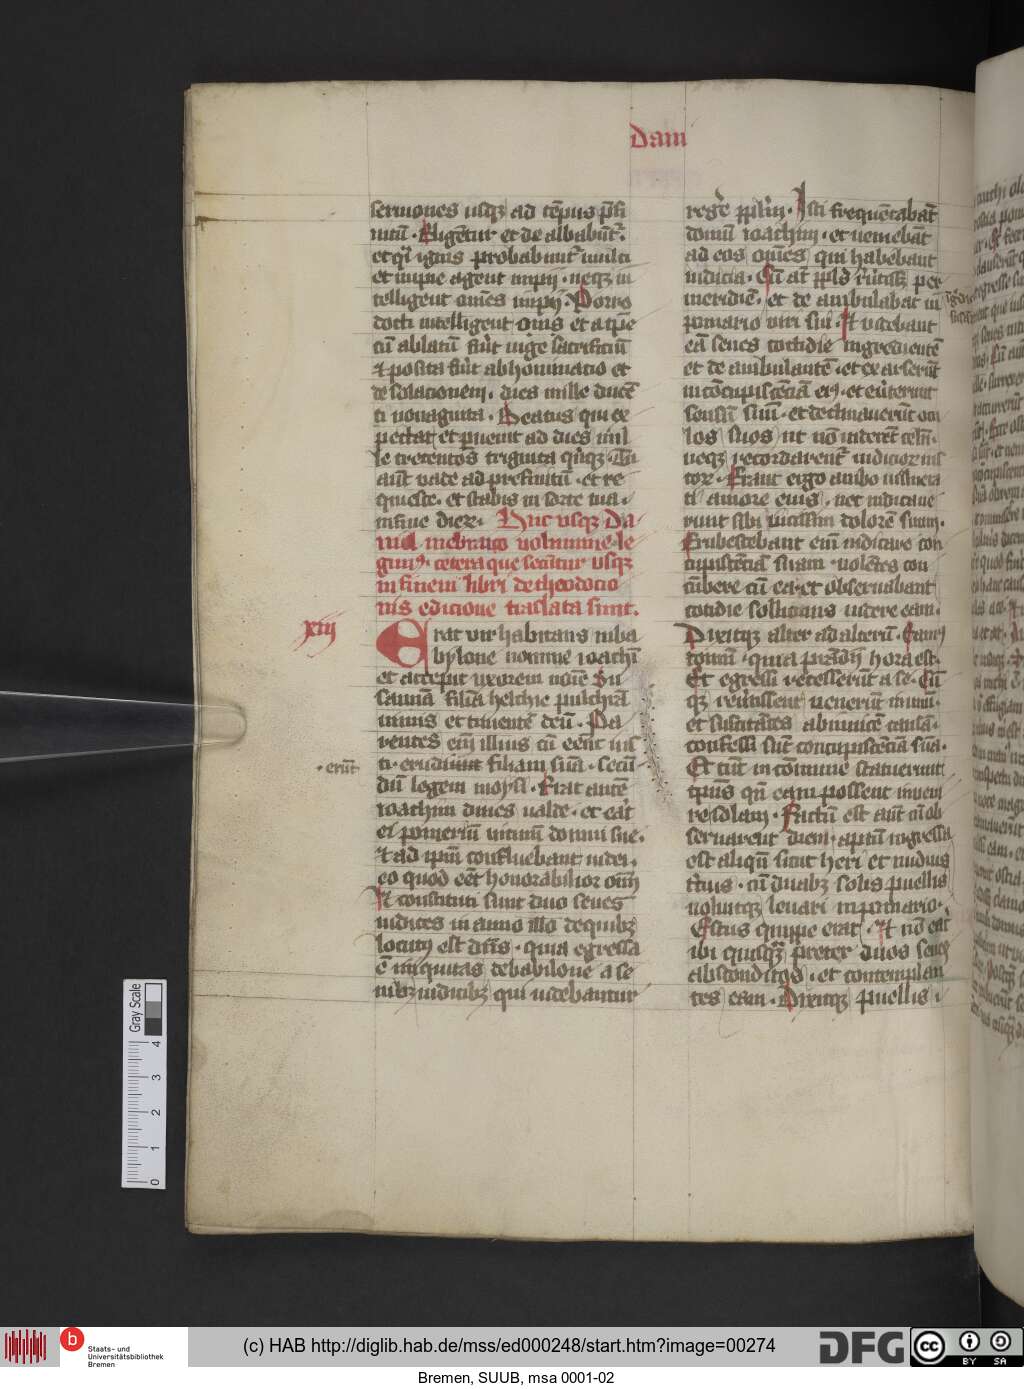 Dani
sermones usq; ad tēpus p̄fi
nitū. Eligētur et de albabūt᷑.
et qͥ ignis probabunt᷑ multi
et impie agent impij. neq; in
telligent om̄es impij. Porro
docti intelligent om̄is et a tp̄e
cū ablatū fūit iuge sacrificiū
et posita fūit abhominatio et
desolacionem. dies mille ducē
ti nonaginta. Beatus qui ex
pectat et p̄uenit ad dies mil
le trecentos triginta qͥnq;. Tu
aūt vade ad prefinitū. et re
quiesce. et stabis in sorte tua.
in fine dierz. Huc usqz Da
niel in ebraico volumine le
gimꝰ. cetera que secūtur usqz
in finem libri de theodocio
nis edicione traslata sunt.
xiij
Erat vir habitans in ba
bylone nomine ioachī
et accepit uxorem noīe Su
sannā filiā helchie pulchrā
nimis et timentē deū. Pa
rentes eī illius cū eēnt ius
ti. erudiunt filiam suā. secū
. erūt
dū legem moysi. Erat autē
ioachim diues ualde. et eāt
ei pomeriū uicinū domui sue.
Et ad ipm̄ confluebant iudei.
eo quod eēt honorabilior oīm
Et constituti sunt duo senes
iudices in anno illo de quibz
locutꝰ est dn̄s. quia egressa
ē iniquitas de babilone a se
nibz iudicibz qui uidebantur
regē pp̄lm. Isti frequētabāt
domū ioachim. et ueniebāt
ad eos om̄es qui habebant
iudicia. Cū at̄ pp̄ls rūtisset per
meridiē. et de ambulabat in
pomario viri sui. Et videbant
eā senes cottidie ingredientē
et de ambulantē. et exarserūt
in cōcupiscēciā eiꝰ. et eūterunt
sensū suū. et declinauerūt ocu
los suos ut nō uiderēt celū.
neqz recordarent᷑ iudicior ius
torz. Erant ergo ambo uulnera
ti amore eius. nec indicaue
runt sibi uicissim dolorē suum.
Erubescebant eī indicare con
cupiscēciā suam. uolētes con
cūbere cū ea. et obseruabant
cotidie sollicicius uidere eam.
Dixitqz alter ad alterū. Eamꝰ
domū. quia prādij hora est.
Et egressi recesserūt a se. Cū
qz reūtissent uenerūt in unū.
et suscitātes abinuicē causā.
confessi sūt concupiscēciā suā.
Et tūc in cōmune statuerunt
tp̄us qn̄ eam possent inuenire
re solam. Factū est aūt cū ob
seruarent diem. aptū ingressa
est aliqn̄ sicut heri et nudius
t̄cius. cū duabz solis puellis
uoluitqz leuari in pomario.
Estus quippe erat. Et nō eāt
ibi quisqz preter duos senes
absconditos. et contemplan
tes eam. Dixitqz puellis.
Gray Scale
0 1 2 3 4
b
Staats- und
Universitätsbibliothek
Bremen
(c) HAB http://diglib.hab.de/mss/ed000248/start.htm?image=00274
DFG
cc BY SA
Bremen, SUUB, msa 0001-02